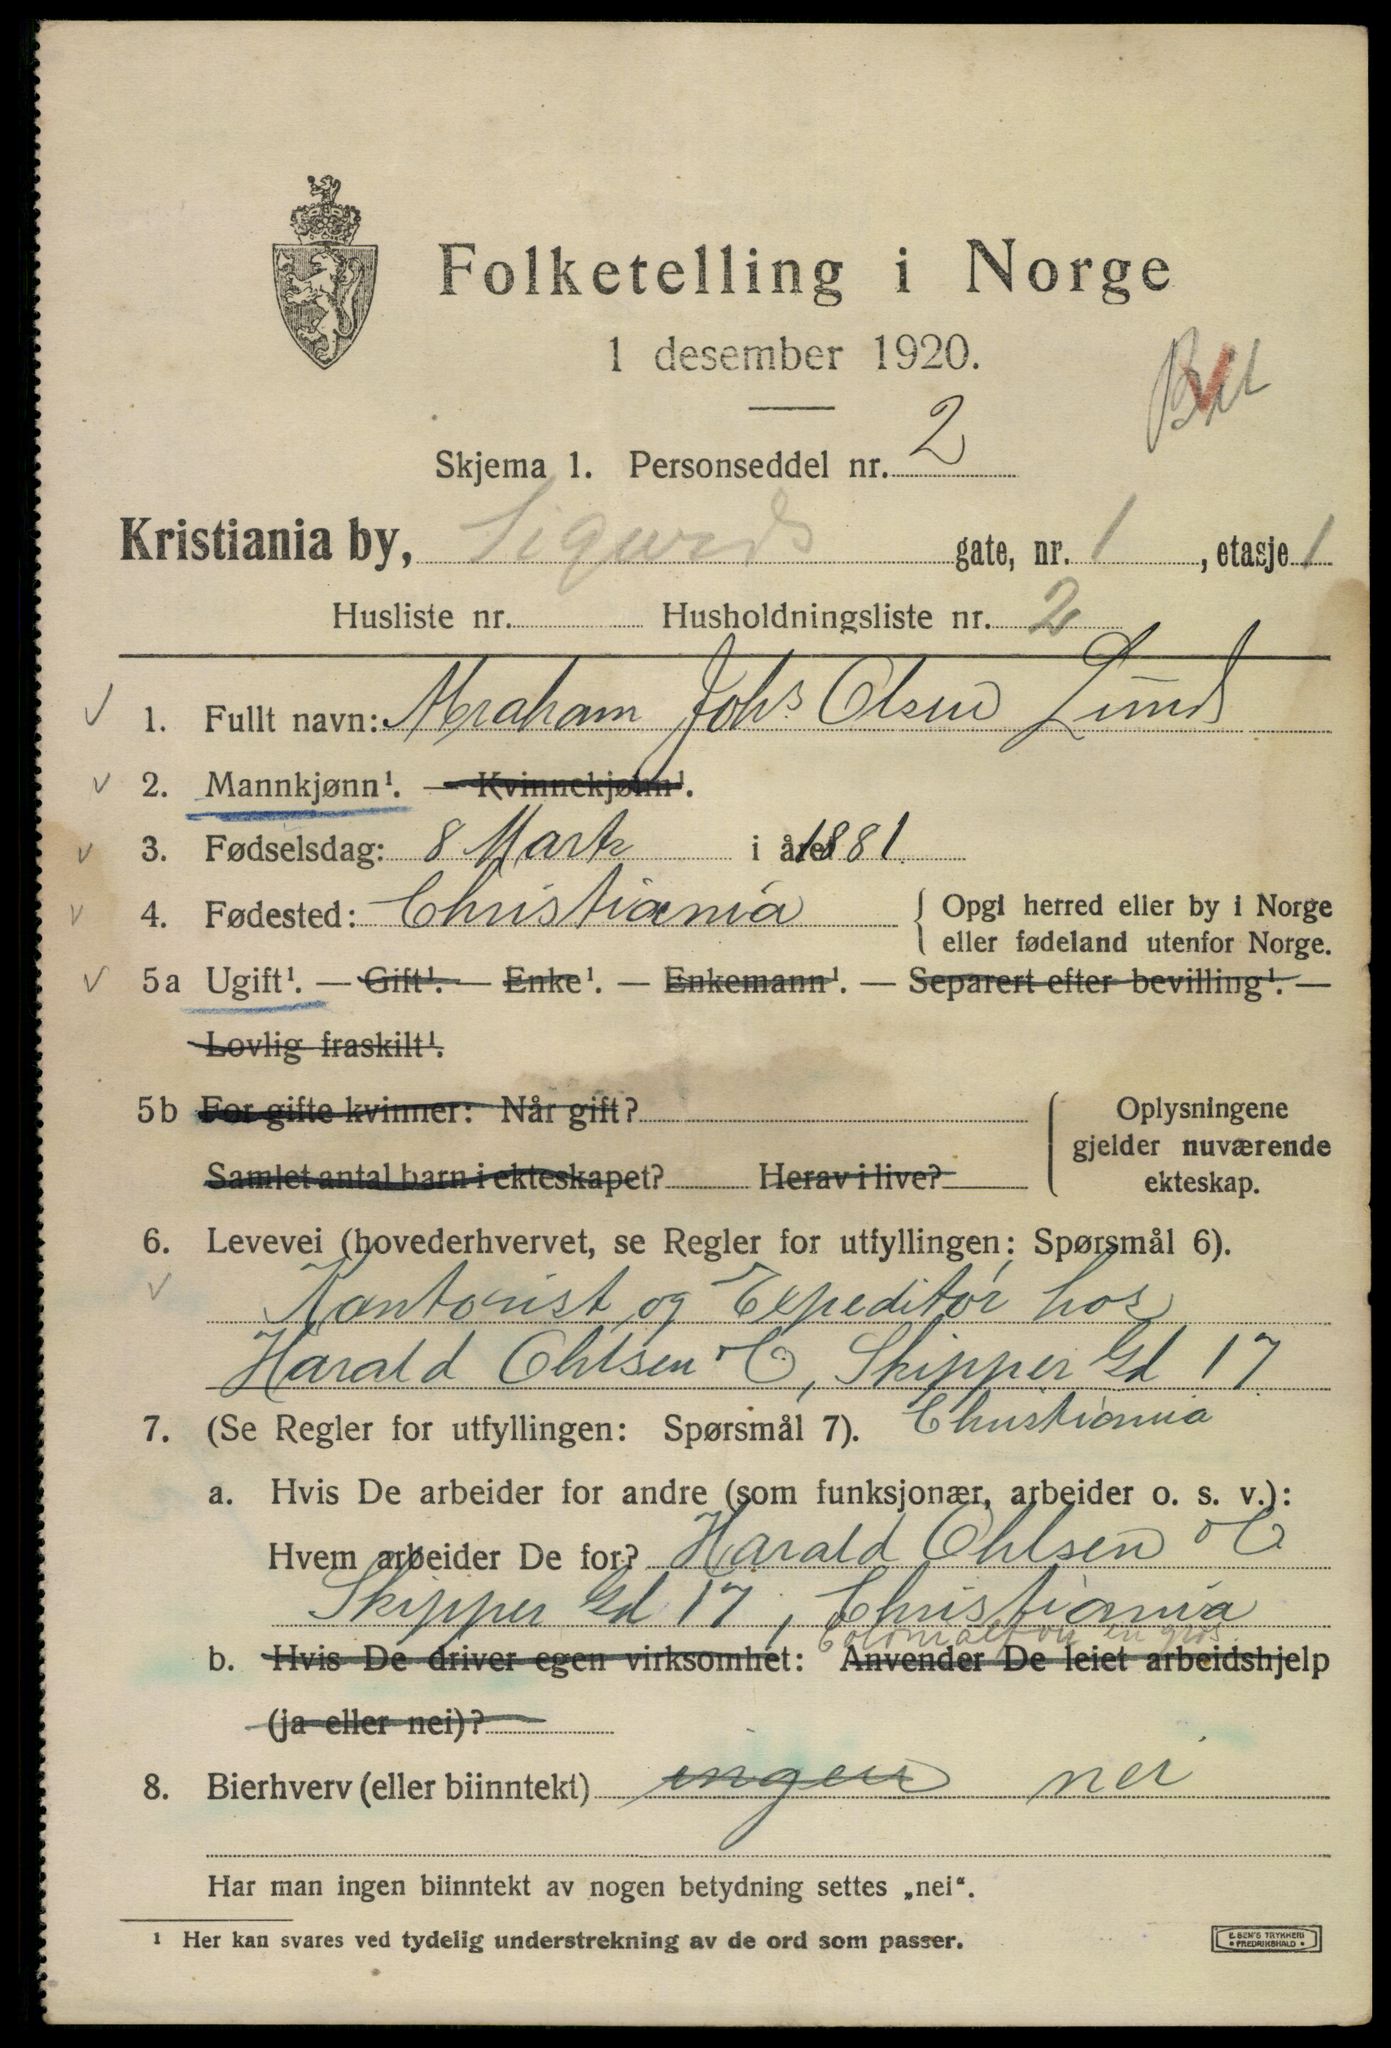 Folketelling i Norge
1 desember 1920.
Skjema 1. Personseddel nr. 2
Kristiania by, Sigurds gate, nr. 1, etasje 1
Husliste nr. Husholdningsliste nr. 2
1. Fullt navn: Abraham Johs Olsen Lund
2. Mannkjønn¹. — Kvinnekjønn¹.
3. Fødselsdag: 8 Marts i året 1881
4. Fødested: Christiania { Opgi herred eller by i Norge
eller fødeland utenfor Norge.
5a Ugift¹. — Gift¹. — Enke¹. — Enkemann¹. — Separert efter bevilling¹. —
Lovlig fraskilt¹.
5b For gifte kvinner: Når gift? { Oplysningene
gjelder nuværende
Samlet antal barn i ekteskapet? Herav i live? ekteskap.
6. Levevei (hovederhvervet, se Regler for utfyllingen: Spørsmål 6).
Kontorist og Expeditør hos
Harald Ohlsen & C, Skipper Gd 17
Christiania
7. (Se Regler for utfyllingen: Spørsmål 7).
a. Hvis De arbeider for andre (som funksjonær, arbeider o. s. v.):
Hvem arbeider De for? Harald Ohlsen & C
Skipper Gd 17, Christiania
en gros
b. Hvis De driver egen virksomhet: Anvender De leiet arbeidshjelp
(ja eller nei)?
8. Bierhverv (eller biinntekt) ingen nei
Har man ingen biinntekt av nogen betydning settes „nei“.
¹ Her kan svares ved tydelig understrekning av de ord som passer.
E. SEM'S TRYKKERI
• FREDRIKSHALD •